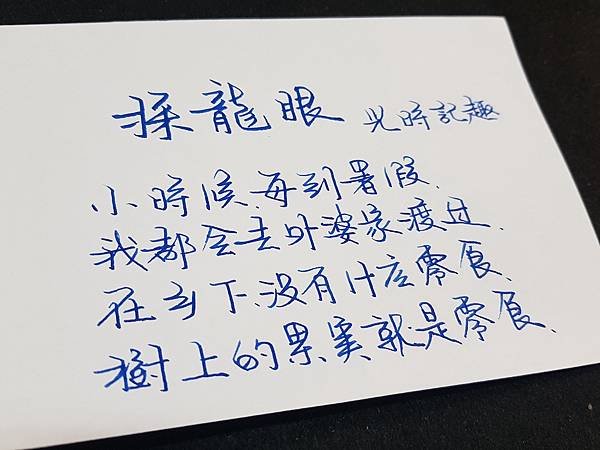 採龍眼 兒時記趣
小時候、每到暑假、
我都会去外婆家渡过、
在乡下、没有什庅零食、
樹上的果实就是零食、